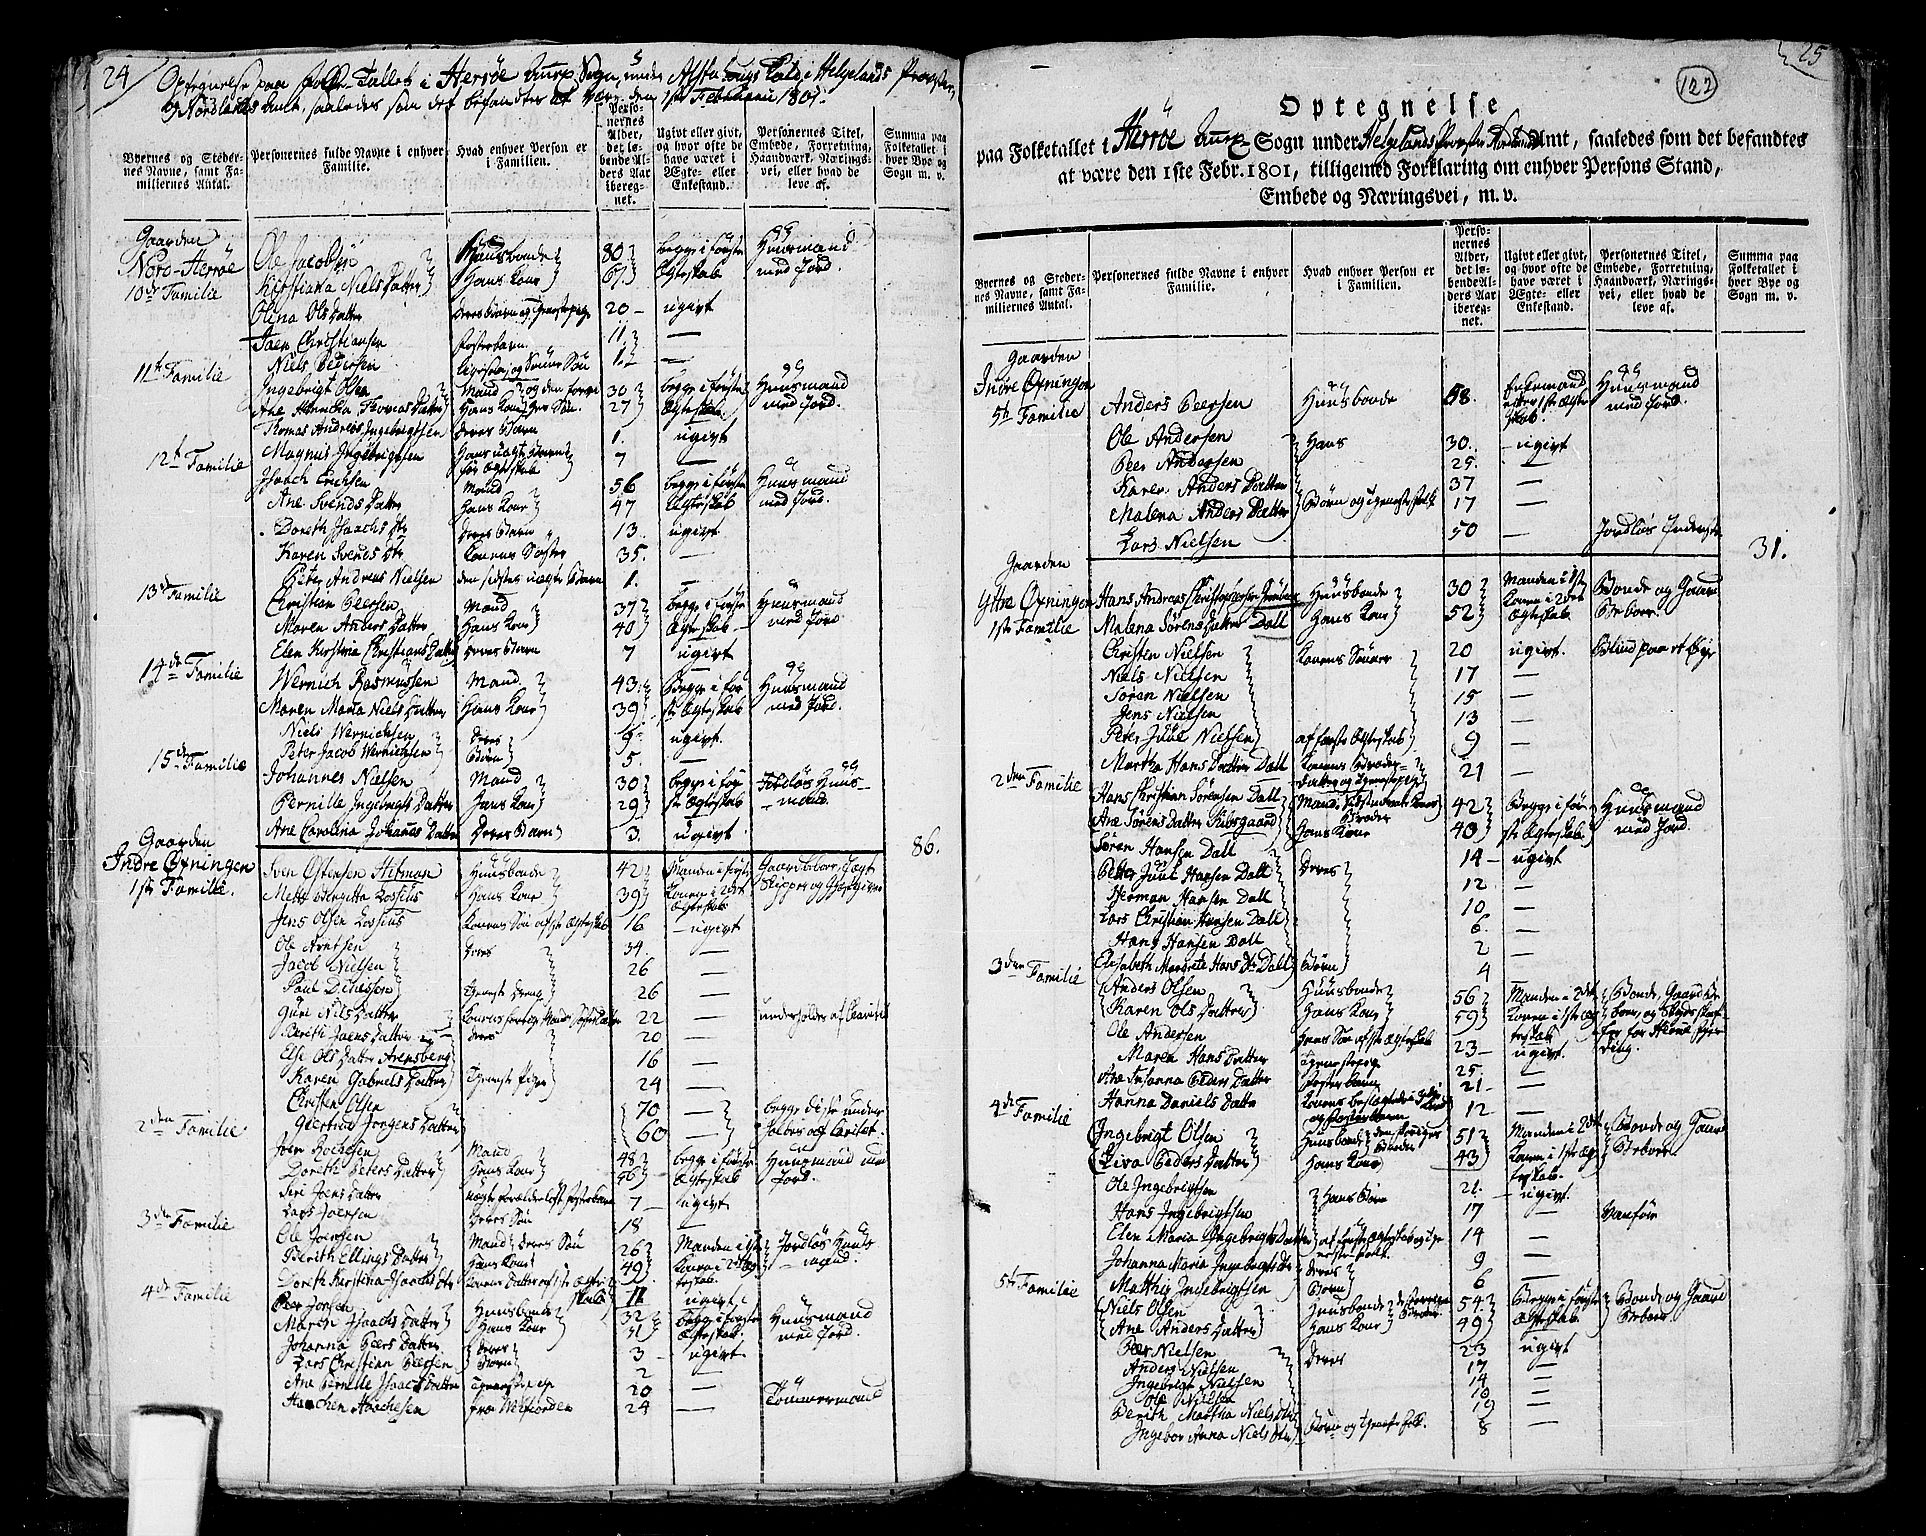 24
Optegnelse paa Folke Tallet i Herröe Sogn, under Alstahougs Præstegield i Helgelands Provstie,
Nordlands Amt, saaledes som det befandtes at være den 1ste Februarii 1801.
Byernes og Stedernes Navne, samt Familiernes Antal.
Personernes fulde Navne i enhver Familie.
Hvad enhver Person er i Familien.
Personernes Alder, det løbende Alders Aar iberegnet.
Ugivt eller givt, og hvor ofte de have været i Ægte- eller Enkestand.
Personernes Titel, Embede, Forretning, Haandværk, Næringsvei, eller hvad de leve af.
Summa paa Folketallet i hver Bye og Sogn m. v.
Gaarden
Nord-Herröe
10de Familie
Ole Jacobsen Huusbonde 80 begge i første Huusmand
Kirstiana Niels Datter Hans Kone 67 Ægteskab med Jord.
Olina Ols Datter 20 ugivt
Joen Christiansen Fosterbarn 11 —
Niels Pedersen 1 —
11te Familie
Ingebrigt Olsen Mand 30 begge i første Huusmand
Ane Annicha Thomas Datter Hans Kone 27 Ægteskab med Jord.
Thomas Andreas Ingebrigtsen Deres Barn 1. ugivt
Magnus Ingebrigtsen 7 —
12te Familie
Isaach Erichsen Mand 56 begge i første Huusmand
Ane Svends Datter Hans Kone 47 Ægteskab med Jord.
Doreth Isaachs Dtr Deres Barn 13. ugivt
Karen Svends Dtr Konens Søster 35. —
Peter Andreas Nielsen den sidstes uægte Barn 1. —
13de Familie
Christian Peersen Mand 37 begge i første Huusmand
Maren Anders Datter Hans Kone 40 Ægteskab med Jord.
Elen Kirstina Christians Datter Deres Barn 7 ugivt
14de Familie
Wernich Rasmussen Mand 43 Begge i før Huusmand
Maren Maria Niels Datter Hans Kone 39 ste Ægteskab med Jord.
Niels Wernichsen Deres 9 ugivt.
Peter Jacob Wernichsen Børn 5. —
15de Familie
Johannes Nielsen Mand 30 begge i før Jordløs Huus-
Pernille Ingebrigts Datter Hans Kone 29 ste Ægteskab mand.
Ane Carolina Johannes Datter Deres Barn 3. ugivt
86.
Gaarden
Indre Øxningen
1ste Familie.
Sven Østensen Hitman Huusbonde 42 Manden i første Gaardbeboer, Jagt
Mette Birgitta Lossius Hans Kone 39 Konen i 2det Ægteskab
Jens Olsen Lossius Konens Søn af 1ste Ægteskab 16 ugivt
Ole Arntsen Deres 54. —
Jacob Nielsen 26 —
Paul Dinessen Tjeneste Dreng 26 —
Guri Nils Datter 22 —
Berith Joens Datter Deres 20 —
Else Ols Datter Arensberg 16 —
Karen Gabriels Datter Tjeneste Piger 24 —
Christen Olsen 70 — begge disse under
Giertrud Jørgens Datter 60 — holdes af Careset.
2den Familie
Joen Roelsen Mand 48 begge i første Huusmand med
Doreth Peters Datter Hans Kone 46 Ægteskab Jord.
Siri Joens Datter 7 ugivt
Lars Joensen Deres Søn 18 —
3die Familie
Ole Joensen Mand Deres Søn 26 Manden i 1ste Jordløs Huus
Berith Ellings Datter Hans Kone 49 Konen i 2det Æg mand.
Doreth Kirstina Isaachs Dtr Konens Datter af 1ste Ægteskab 11 ugivt
4de Familie
Peer Jonsen Huusbonde 32 begge i første Huusmand
Maren Isaachs Datter Hans Kone 31 Ægteskab med Jord.
Johanna Peers Datter Deres 3 ugivt
Lars Christian Peersen Børn 2 —
Ane Pernille Isaachs Datter Tjenestepige 20 —
fra Wefsorden 24 — Tömmermand
25
122
Optegnelse
paa Folketallet i Herröe Sogn under Helgelands Provstie Nordlands Amt, saaledes som det befandtes
at være den 1ste Febr. 1801, tilligemed Forklaring om enhver Persons Stand,
Embede og Næringsvei, m. v.
Byernes og Stedernes Navne, samt Familiernes Antal.
Personernes fulde Navne i enhver Familie.
Hvad enhver Person er i Familien.
Personernes Alder, det løbende Alders Aar iberegnet.
Ugivt eller givt, og hvor ofte de have været i Ægte- eller Enkestand.
Personernes Titel, Embede, Forretning, Haandværk, Næringsvei, eller hvad de leve af.
Summa paa Folketallet i hver Bye og Sogn m. v.
Gaarden
Indre Øxningen
5te Familie
Anders Peersen Huusbonde 58. Enkemand efter 1ste Ægteskab Huusmand med Jord.
Ole Andersen Hans 30. ugivt
Peer Andersen 25. —
Karen Anders Datter 37 —
Malena Anders Datter Børn og tjenestefolk 17 —
Lars Nielsen 50 — Jordløs Inderste
31.
Gaarden
Yttre Øxningen
1ste Familie
Hans Andreas Christophersen Huusbonde 30 Manden i 1ste Bonde og Gaard
Malena Sørens Datter Dall Hans Kone 52 Konen i 2det Ægteskab Beboer.
Christen Nielsen Konens Sønner 20 ugivt. Blind paa et Øie
Niels Nielsen 17 —
Søren Nielsen 15 —
Jens Nielsen 13 —
Peter Juul Nielsen af første Ægteskab 9 —
Martha Hans Datter Dall Konens Broder-Datter og tjenestepige 21 —
2den Familie
Hans Christian Sørensen Dall Mand 42 Begge i før Huusmand
Ane Sørens Datter Hans Kone 40 ste Ægteskab. med Jord.
Søren Hansen Dall 14 ugivt
Petter Juul Hansen Dall Deres 12 —
Herman Hansen Dall 10 —
Lars Christian Hansen Dall 6 —
Hans Hansen Dall 2 —
Elisabeth Margrete Hans Dtr Dall Børn 4 —
3die Familie
Anders Olsen Huusbonde 56 Manden i 2det Bonde, Gaard Be
Karen Ols Datter Hans Kone 59 Konen i 1ste Æg boer, og Skydsskaf
Ole Andersen Hans Søn af 1ste Ægteskab 23 ugivt
Maren Hans Datter Tjenestepige 25. —
Ane Susanna Peders Datter Fosterbarn 21 —
Hanna Daniels Datter 12 —
4de Familie
Ingebrigt Olsen Huusbonde 51 Manden i 2det Bonde og Gaard
Liva Peders Datter Hans Kone 43 Konen i 1ste Æg Beboer
Ole Ingebrigtsen 21 ugivt.
Hans Ingebrigtsen Hans Børn 17 — Vanför
Elen Maria Ingebrigts Datter 14 —
Johanna Maria Ingebrigts Dtr Deres 9 —
Matthis Ingebrigtsen Børn 6 —
5te Familie
Niels Olsen Huusbonde 54 Begge i første Bonde og Gaard
Ane Anders Datter Hans Kone 49 Ægteskab. Beboer.
Peer Nielsen Deres 23 ugivt
Anders Nielsen 17 —
Ingebrigt Nielsen 14 —
Ole Nielsen 10 —
Berith Martha Niels Dtr 19 —
Ingebor Anna Niels Dtr Børn og tjeneste folk. 8 —